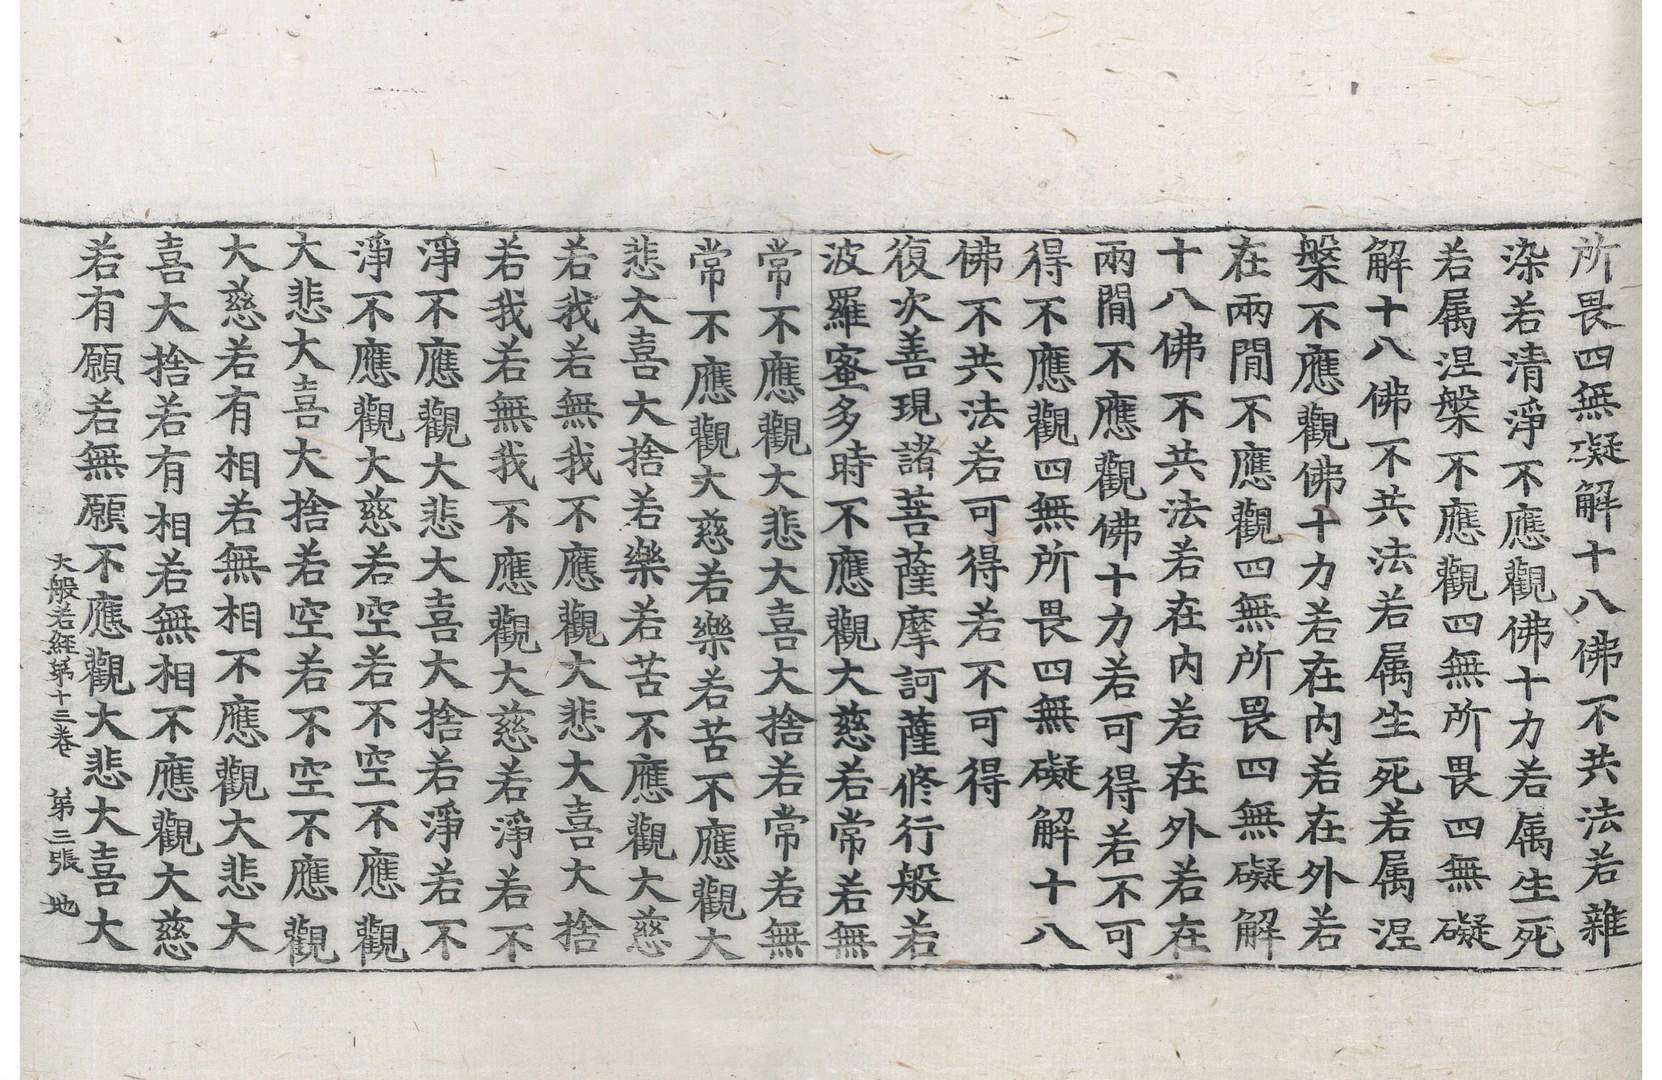 所畏四無礙解十八佛不共法若雜
染若清淨不應觀佛十力若属生死
若属涅槃不應觀四無所畏四無礙
解十八佛不共法若属生死若属涅
槃不應觀佛十力若在內若在外若
在兩間不應觀四無所畏四無礙解
十八佛不共法若在內若在外若在
兩間不應觀佛十力若可得若不可
得不應觀四無所畏四無礙解十八
佛不共法若可得若不可得
復次善現諸菩薩摩訶薩修行般若
波羅蜜多時不應觀大慈若常若無
常不應觀大悲大喜大捨若常若無
常不應觀大慈若樂若苦不應觀大
悲大喜大捨若樂若苦不應觀大慈
若我若無我不應觀大悲大喜大捨
若我若無我不應觀大慈若淨若不
淨不應觀大悲大喜大捨若淨若不
淨不應觀大慈若空若不空不應觀
大悲大喜大捨若空若不空不應觀
大慈若有相若無相不應觀大悲大
喜大捨若有相若無相不應觀大慈
若有願若無願不應觀大悲大喜大
大般若經第十三卷 第三張 地